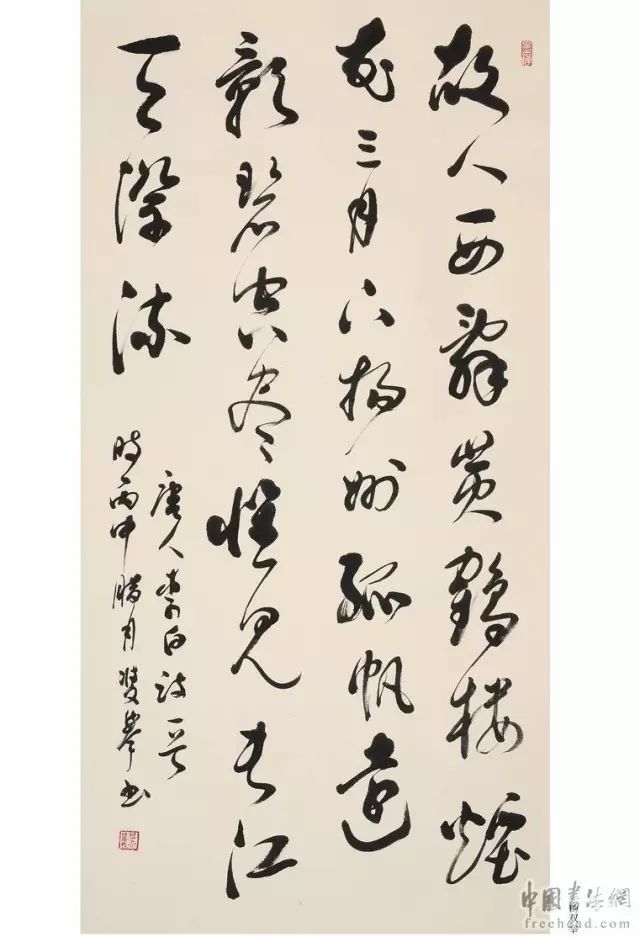 故人西辭黄鶴樓煙
花三月下揚州孤帆遠
影碧空盡惟見長江
天際流
唐人李白詩一首
時丙申臘月雙舉書
中國書法網